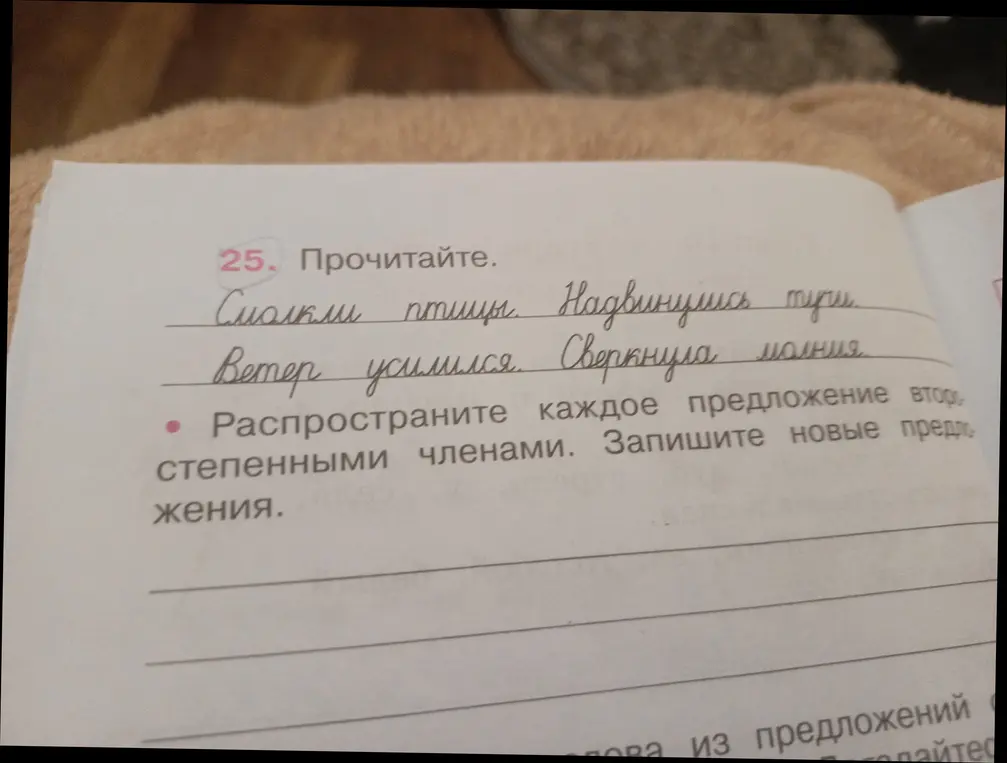 25. Прочитайте.
Смолкли птицы. Надвинулись тучи.
Ветер усилился. Сверкнула молния.
• Распространите каждое предложение второ-
степенными членами. Запишите новые предло-
жения.
из предложений